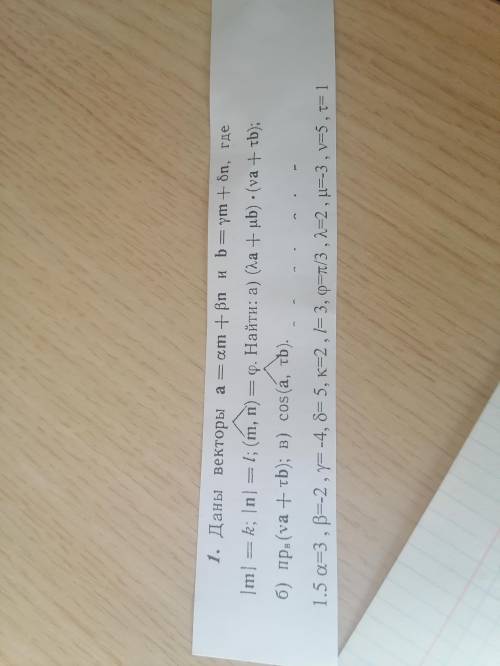 1. Даны векторы a = αm + βn и b = γm + δn, где
|m| = k; |n| = l; (m, n) = φ. Найти: а) (λa + μb) · (νa + τb);
б) прв(νa + τb); в) cos(a, τb).
1.5 α=3 , β=-2 , γ= -4, δ= 5, κ=2 , l= 3, φ=π/3 , λ=2 , μ=-3 , ν=5 , τ= 1